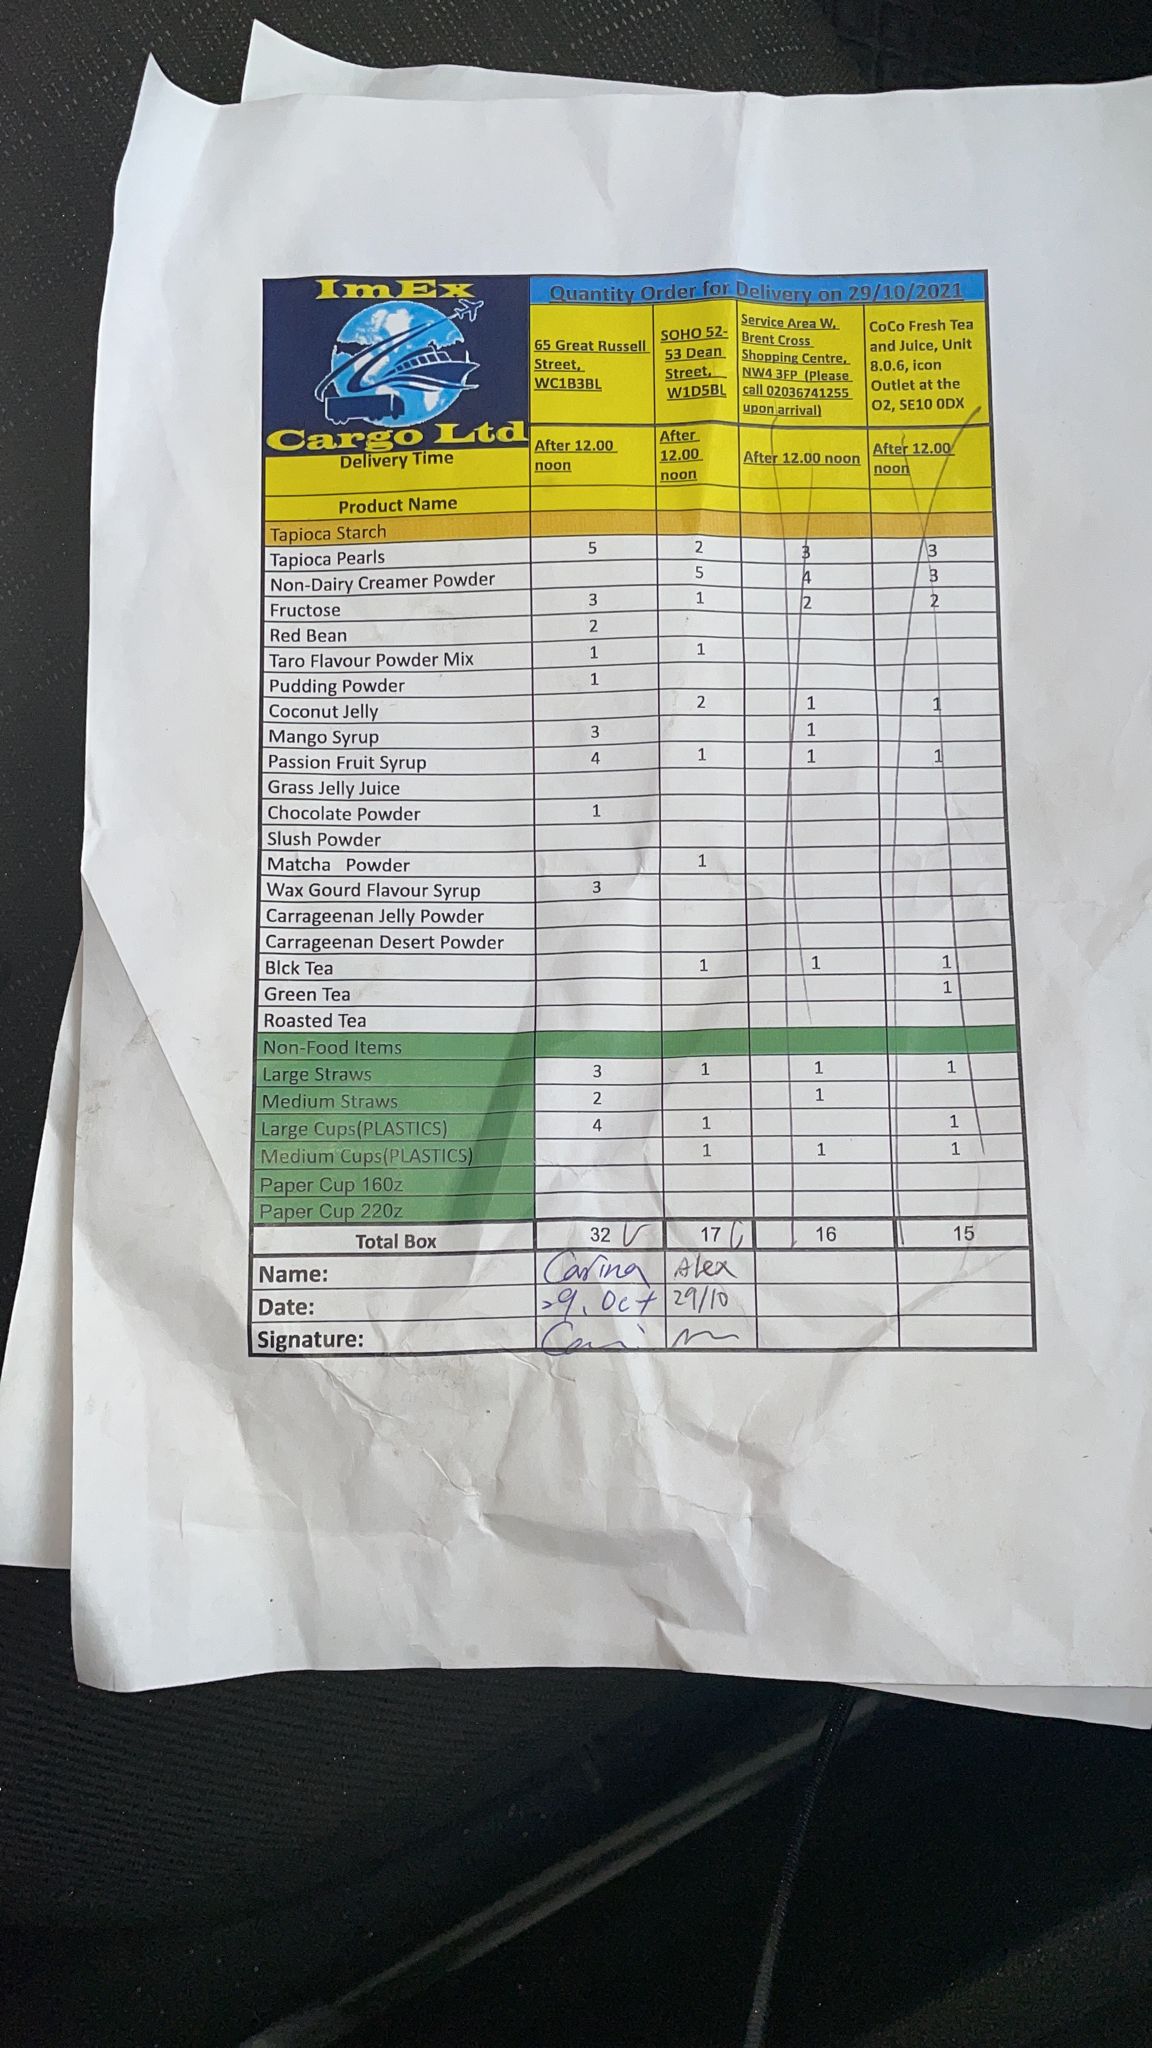 ImEx
Cargo Ltd
Quantity Order for Delivery on 29/10/2021
65 Great Russell
Street,
WC1B3BL
SOHO 52-
53 Dean
Street,
W1D5BL
Service Area W,
Brent Cross
Shopping Centre,
NW4 3FP (Please
call 02036741255
upon arrival)
CoCo Fresh Tea
and Juice, Unit
8.0.6, icon
Outlet at the
O2, SE10 0DX
Delivery Time
After 12.00
noon
After
12.00
noon
After 12.00 noon
After 12.00
noon
Product Name
Tapioca Starch
Tapioca Pearls 5 2 3 3
Non-Dairy Creamer Powder 5 4 3
Fructose 3 1 2 2
Red Bean 2
Taro Flavour Powder Mix 1 1
Pudding Powder 1
Coconut Jelly 2 1 1
Mango Syrup 3 1
Passion Fruit Syrup 4 1 1 1
Grass Jelly Juice
Chocolate Powder 1
Slush Powder
Matcha Powder 1
Wax Gourd Flavour Syrup 3
Carrageenan Jelly Powder
Carrageenan Desert Powder
Blck Tea 1 1 1
Green Tea 1
Roasted Tea
Non-Food Items
Large Straws 3 1 1 1
Medium Straws 2 1
Large Cups(PLASTICS) 4 1 1
Medium Cups(PLASTICS) 1 1 1
Paper Cup 16Oz
Paper Cup 22Oz
Total Box 32 17 16 15
Name: Carina Alex
Date: 29. Oct 29/10
Signature: